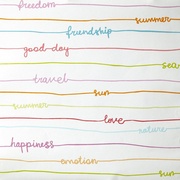 freedom
summer
friendship
good day
sea
travel
sun
summer
love
nature
happiness
emotion
sun